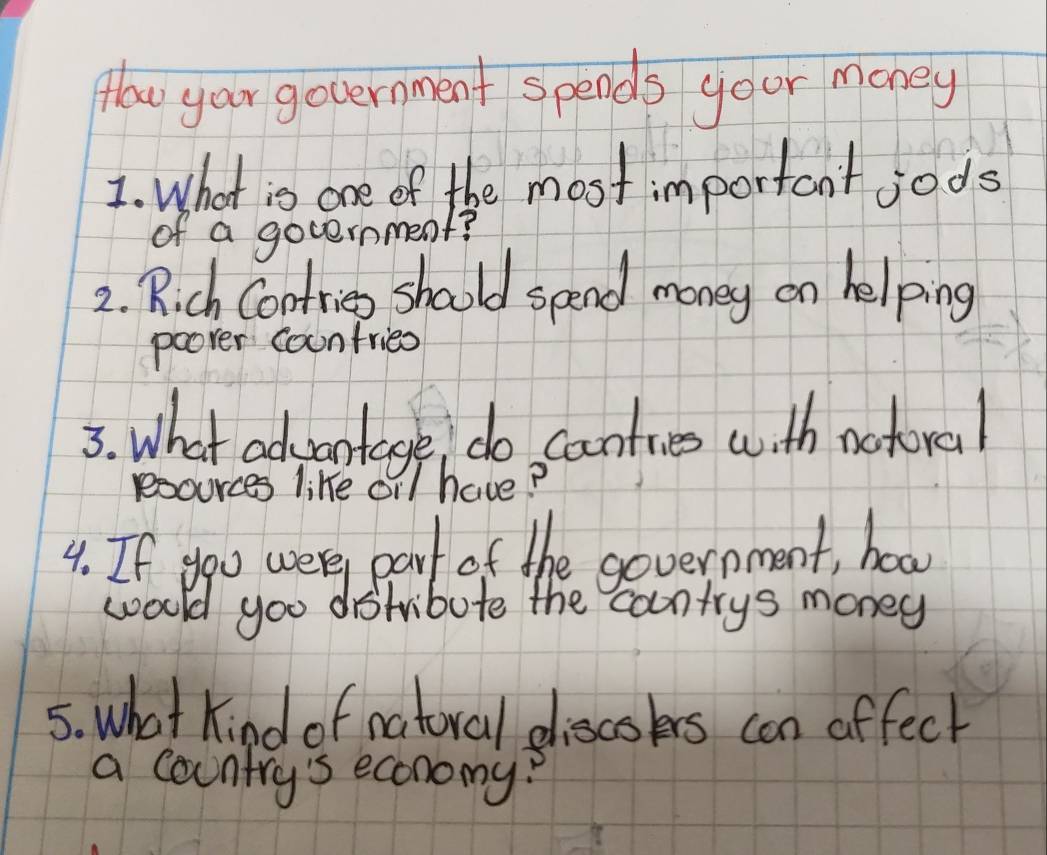 How your government spends your money
1. What is one of the most important jods
of a government?
2. Rich Contries should spend money on helping
poorer countries
3. What advantage, do countries with natural
resources like oil have?
4. If you were, part of the government, how
would you distribute the countrys money
5. What Kind of natural discasters can affect
a country's economy?